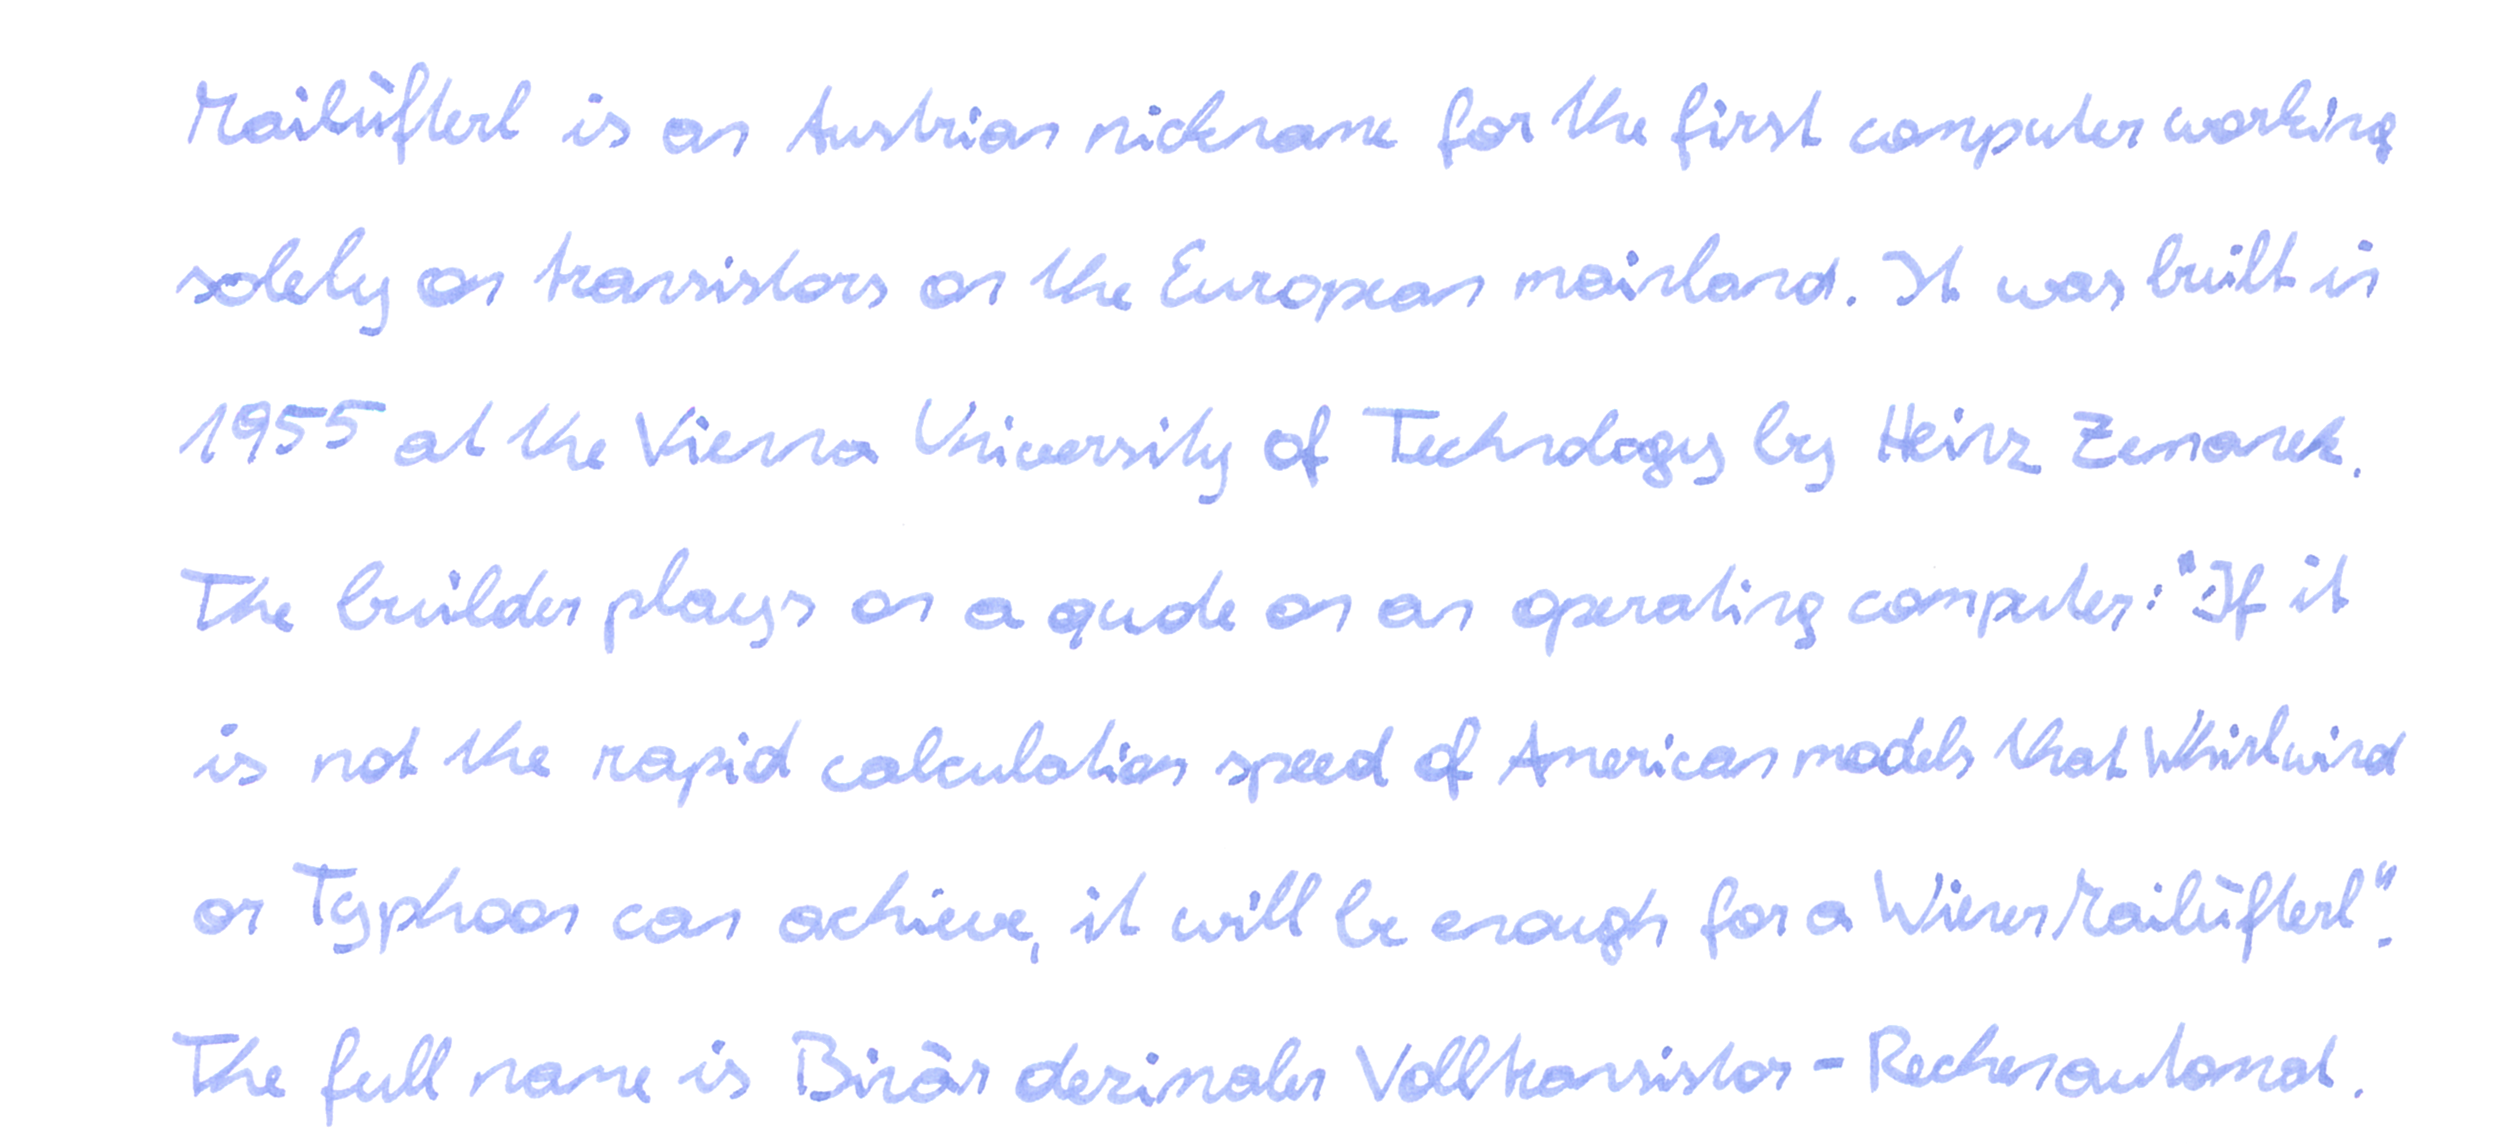 Mailüfterl is an Austrian nickname for the first computer working
solely on transistors on the European mainland. It was built in
1955 at the Vienna University of Technology by Heinz Zemanek.
The builder plays on a quote on an operating computer: "If it
is not the rapid calculation speed of American models that Whirlwind
or Typhoon can achieve, it will be enough for a Wiener Mailüfterl".
The full name is Binär dezimaler Volltransistor-Rechenautomat.